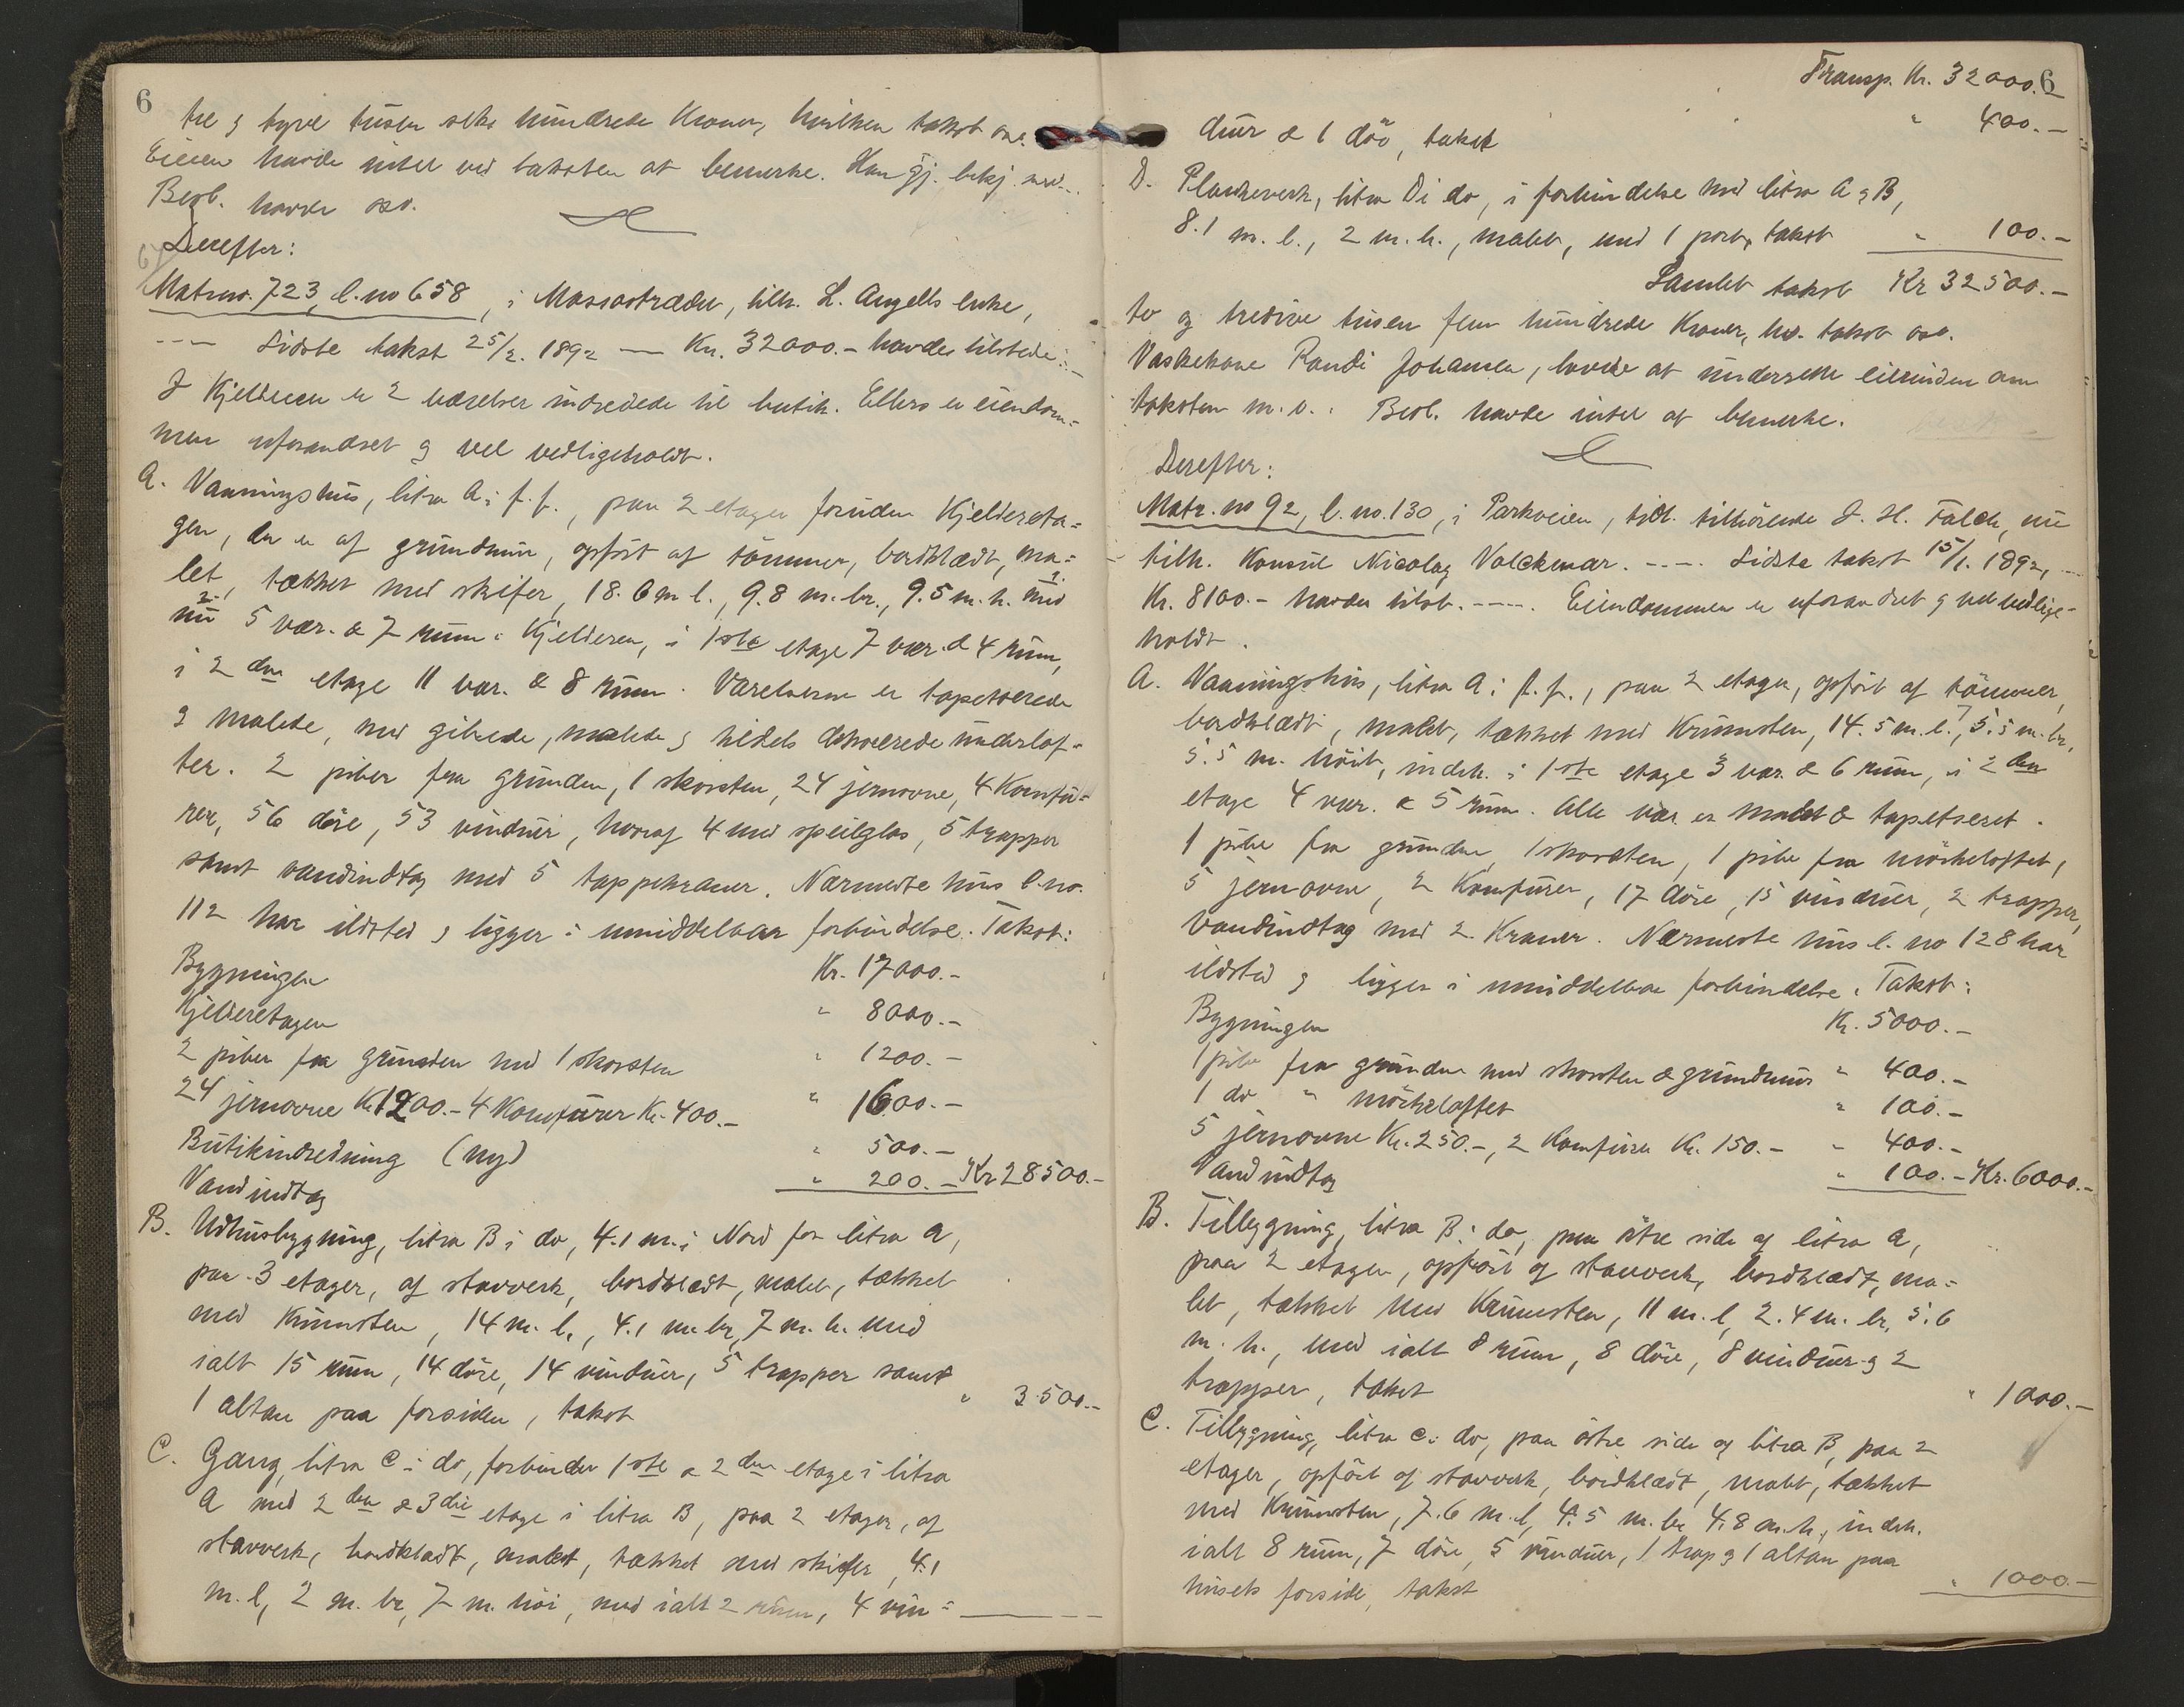 6
tre og tyve tusen seks hundrede Kroner, hvilken takst osv.
Eieren havde intet ved taksten at bemerke. Han gj. bekj. med...
Besl. havde osv.
Derefter:
Matrno. 723, l. no 658, i Massastrædet, tilh. L. Angells enke,
--- Sidste takst 25/2. 1892 — Kr. 32000.- havdes tilstede.
I Kjelderen er 2 værelser indredede til butik. Ellers er eiendom=
men uforandret og vel vedligeholdt.
A. Vaaningshus, litra A i f. f., paa 2 etager foruden Kjeldereta=
gen, der er af grundmur, opført af tømmer, bordklædt, ma=
let, tækket med skifer, 18.6 m l., 9.8 m. br., 9.5 m. h. med
nu 5 vær. & 7 rum i Kjelderen, i 1ste etage 7 vær. & 4 rum,
i 2den etage 11 vær. & 8 rum. Værelserne er tapetserede
og malede, med gibsede, malede og tildels dekorerede underlof=
ter. 2 piber fra grunden, 1 skorsten, 24 jernovne, 4 Komfu=
rer, 56 døre, 53 vinduer, hvoraf 4 med speilglas, 5 trapper
samt vandindtag med 5 tappekraner. Nærmeste hus l. no.
112 har ildsted og ligger i umiddelbar forbindelse. Takst:
Bygningen Kr. 17000.-
Kjelderetagen " 8000.-
2 piber fra grunden med 1 skorsten " 1200.-
24 jernovne Kr. 1200.- 4 Komfurer Kr. 400.- " 1600.-
Butikindredning (ny) " 500.-
Vandindtag " 200.- Kr 28500.-
B. Udhusbygning, litra B i do, 4.1 m. i Nord for litra A,
paa 3 etager, af stavverk, bordklædt, malet, tækket
med Krumsten, 14 m. l., 4.1 m. br, 7 m. h. med
ialt 15 rum, 14 døre, 14 vinduer, 5 trapper samt
1 altan paa forsiden, takst " 3500.-
C. Gang, litra C i do, forbinder 1ste & 2den etage i litra
A med 2den & 3die etage i litra B, paa 2 etager, af
stavverk, bordklædt, malet, tækket med skifer, 4.1
m. l, 2 m. br, 7 m. høi, med ialt 2 rum, 4 vin=
Transp. Kr. 32000. 6
duer & 1 dør, takst " 400.-
D. Plankeverk, litra D i do, i forbindelse med litra A og B,
8.1 m. l., 2 m. h., malet, med 1 port, takst " 100.-
Samlet takst Kr 32500.-
to og tredive tusen fem hundrede Kroner, hv. takst osv.
Vaskekone Randi Johansen, lovede at underrette eierinden om
taksten m. v. Besl. havde intet at bemerke.
Derefter:
Matr. no 92, l. no. 130, i Parkveien, tidl. tilhørende J. H. Falck, nu
tilh. Konsul Nicolay Volckmar. ---. Sidste takst 15/1. 1892,
Kr. 8100.- havdes tilst. ---. Eiendommen er uforandret og vel vedlige-
holdt.
A. Vaaningshus, litra A i f. f., paa 2 etager, opført af tømmer,
bordklædt, malet, tækket med Krumsten, 14.5 m. l., 7.5 m. br.,
5.5 m. høit, indeh. i 1ste etage 3 vær. & 6 rum, i 2den
etage 4 vær. & 5 rum. Alle vær. er malet & tapetseret.
1 pibe fra grunden, 1 skorsten, 1 pibe fra mørkeloftet,
5 jernovne, 2 Komfurer, 17 døre, 15 vinduer, 2 trapper,
vandindtag med 2 Kraner. Nærmeste hus l. no 128 har
ildsted og ligger i umiddelbar forbindelse. Takst:
Bygningen Kr. 5000.-
1 pibe fra grunden med skorsten & grundmur " 400.-
1 do " mørkeloftet " 100.-
5 jernovne Kr. 250.-, 2 Komfurer Kr. 150.- " 400.-
Vandindtag " 100.- Kr. 6000.-
B. Tilbygning, litra B i do, paa østre side af litra A,
paa 2 etager, opført af stavverk, bordklædt, ma=
let, tækket med Krumsten, 11 m. l, 2.4 m. br, 5.6
m. h., med ialt 8 rum, 8 døre, 8 vinduer og 2
trapper, takst " 1000.-
C. Tilbygning, litra C i do, paa østre side af litra B, paa 2
etager, opført af stavverk, bordklædt, malet, tækket
med Krumsten, 7.6 m. l, 4.5 m. br, 4.8 m. h., indeh.
ialt 8 rum, 7 døre, 5 vinduer, 1 trap og 1 altan paa
husets forside, takst " 1000.-